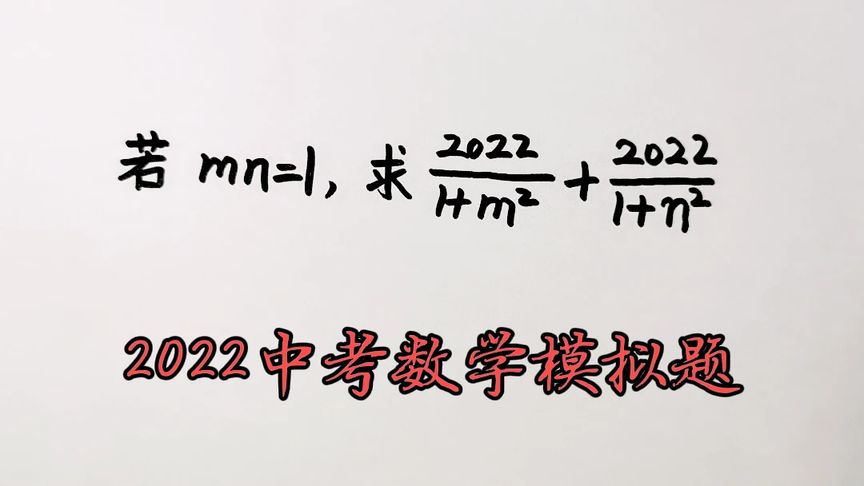 若 mn=1, 求 \frac{2022}{1+m^2} + \frac{2022}{1+n^2}
2022中考数学模拟题